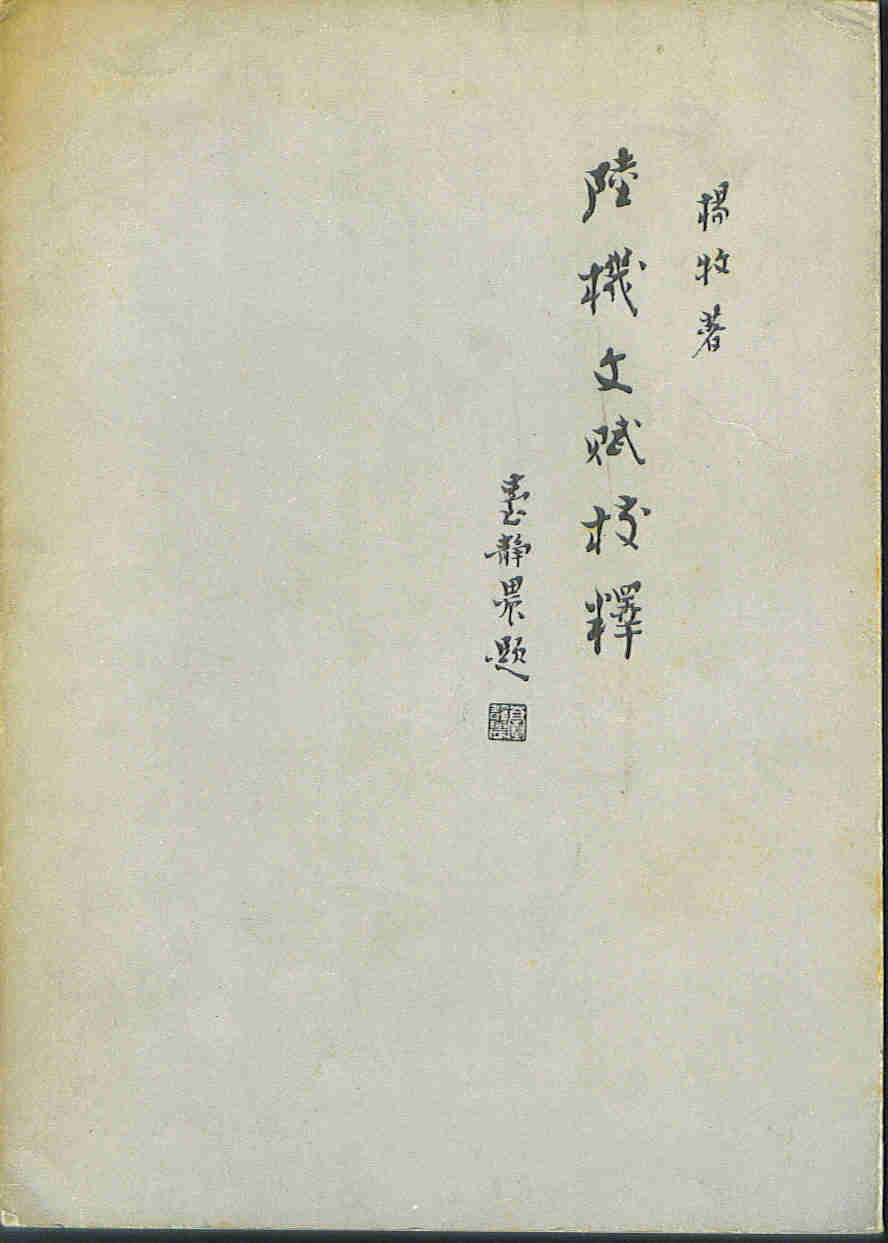 楊牧著
陸機文賦校釋
臺静農題